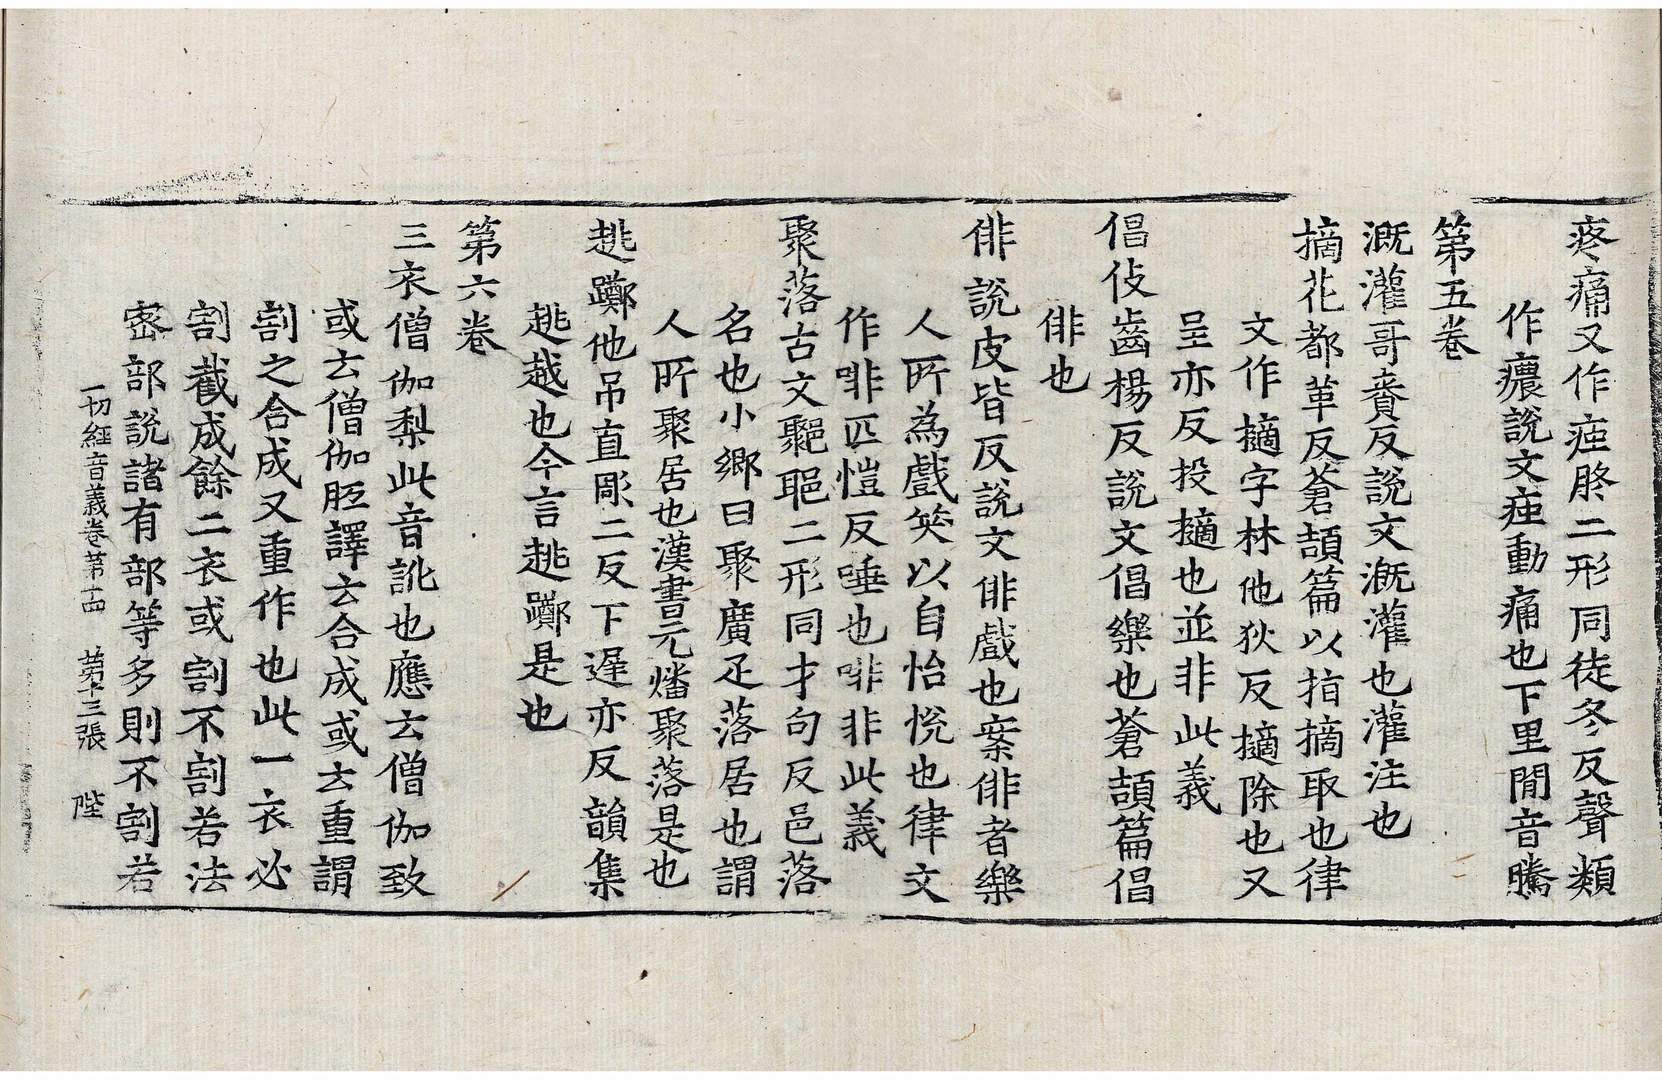 疼痛又作㽲胮二形同徒冬反聲類
作癑說文㽲動痛也下里閒音騰
第五卷
溉灌哥賚反說文溉灌也灌注也
摘花都革反蒼頡篇以指摘取也律
文作擿字林他狄反擿除也又
呈亦反投擿也並非此義
倡伎齒楊反說文倡樂也蒼頡篇倡
俳也
俳說皮皆反說文俳戲也案俳者樂
人所為戲笑以自怡悅也律文
作啡匹愷反唾也啡非此義
聚落古文㷅䣱二形同才句反邑落
名也小鄉曰聚廣疋落居也謂
人所聚居也漢書元燔聚落是也
趒躑他吊直彫二反下遲亦反韻集
趒越也今言趒躑是也
第六卷
三衣僧伽梨此音訛也應云僧伽致
或云僧伽胝譯云合成或云重謂
割之合成又重作也此一衣必
割截成餘二衣或割不割若法
密部說諸有部等多則不割若
一切經音義卷第十四 第十三張 陛